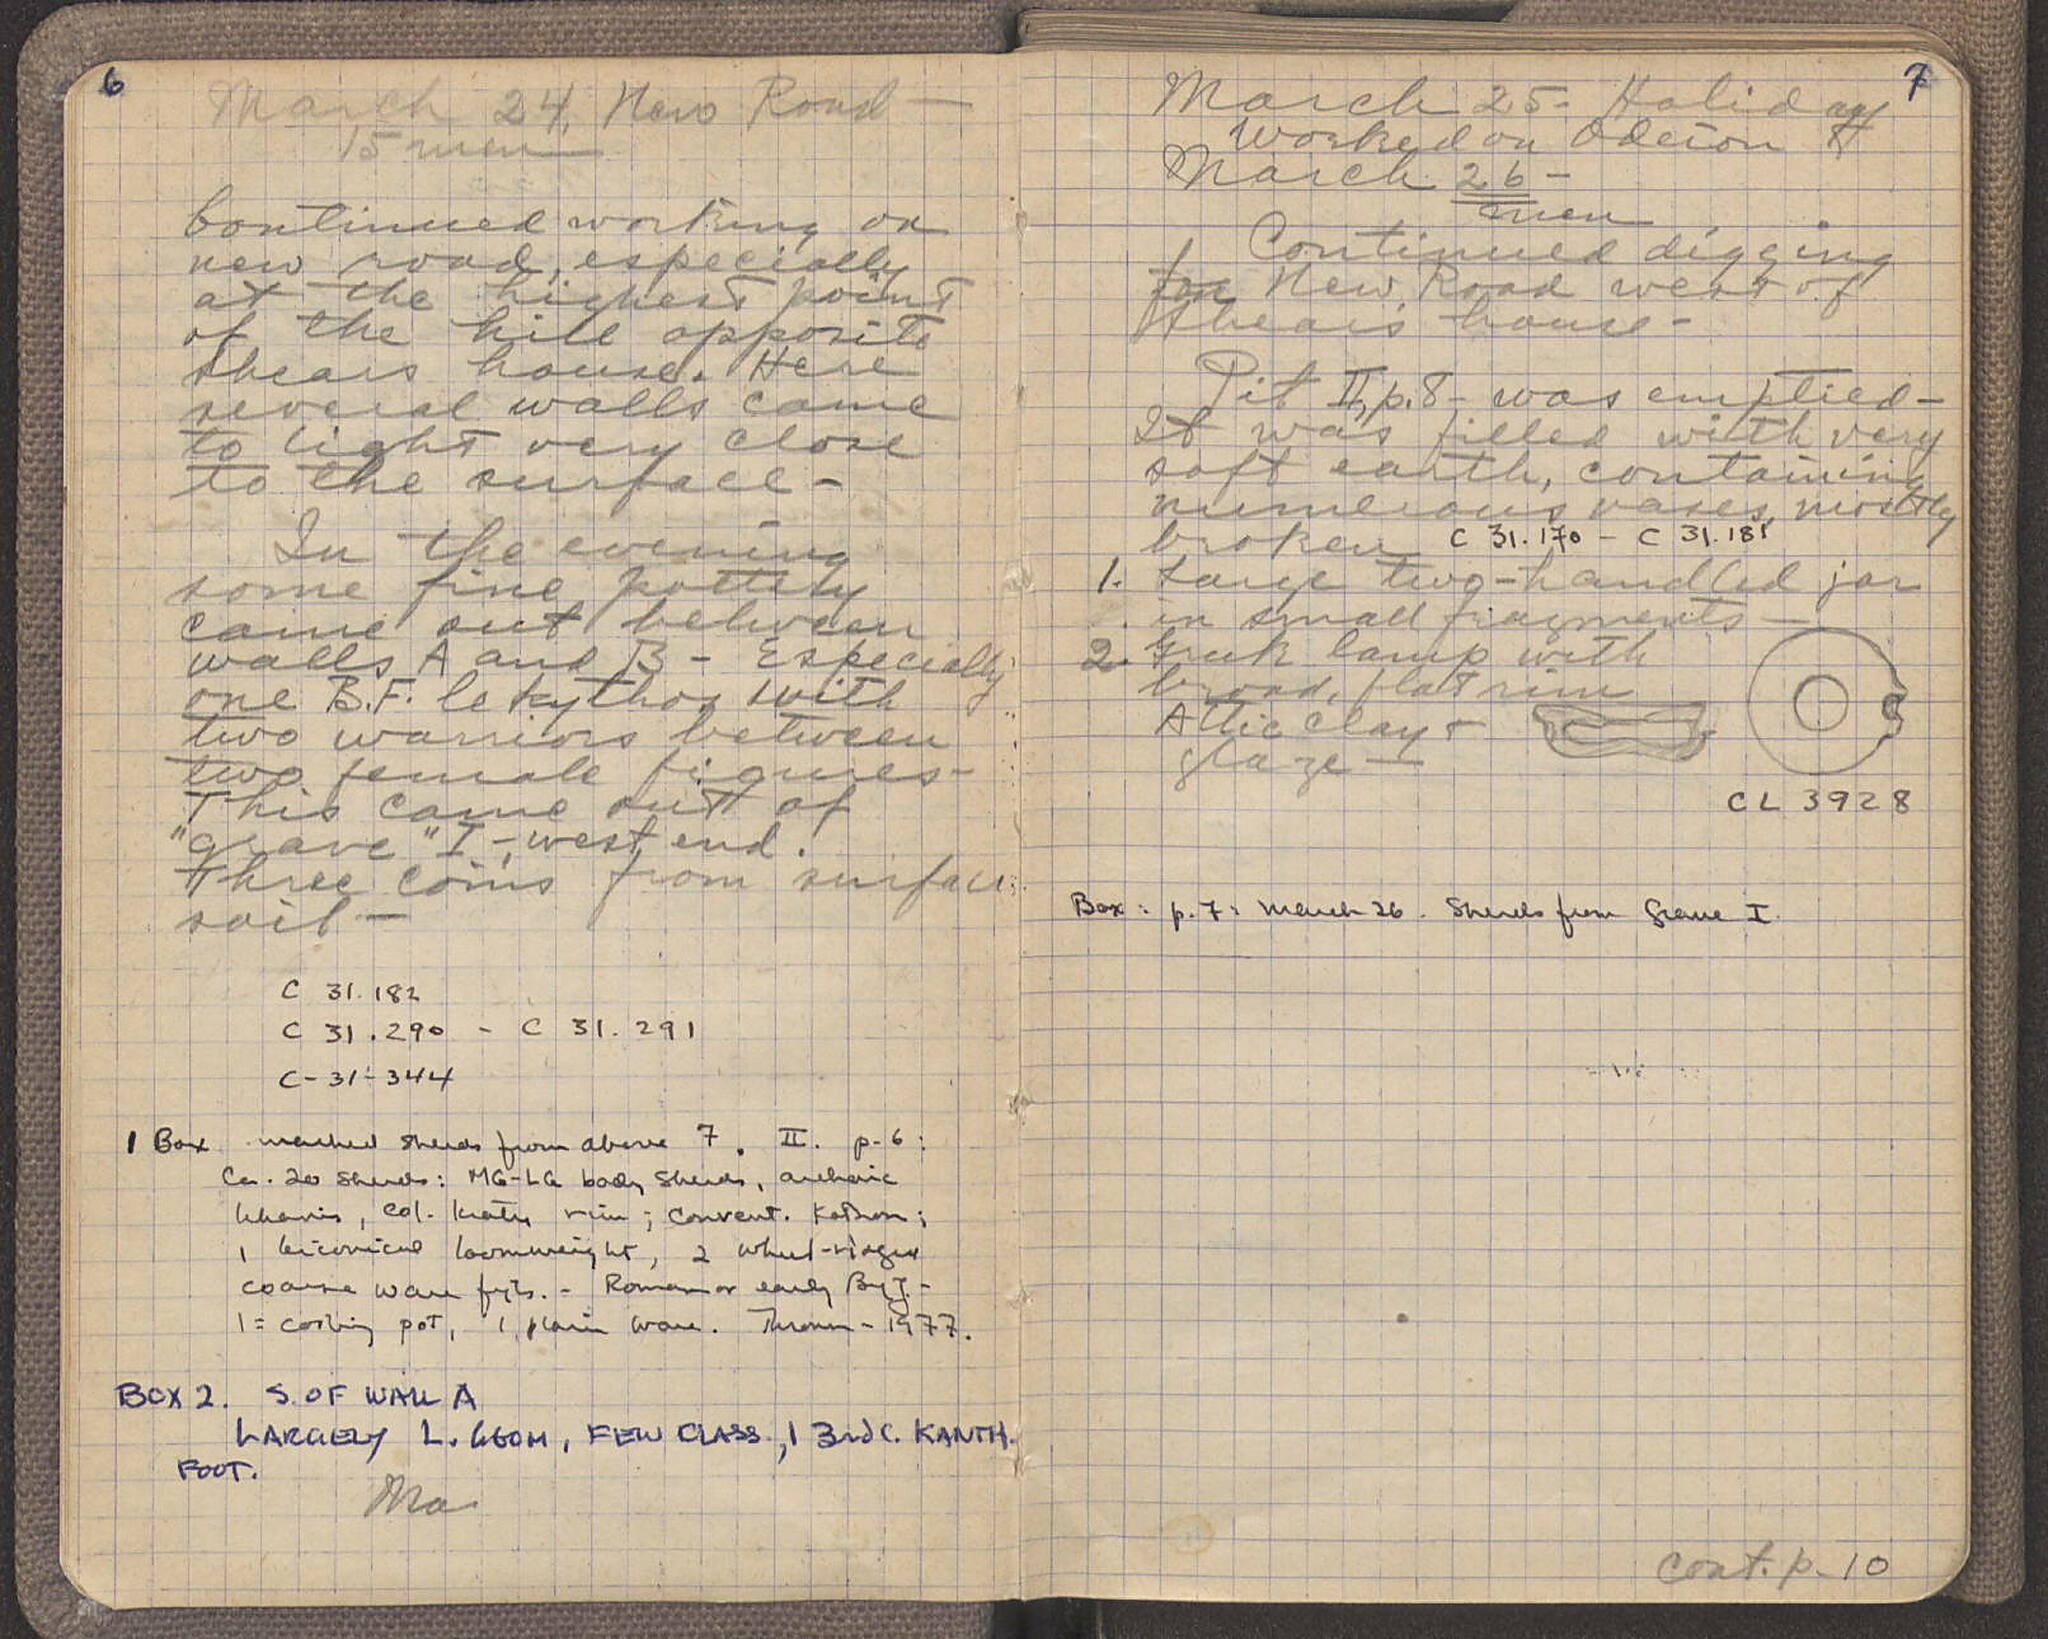 6
March 24, New Road —
15 men
Continued working on
new road, especially
at the highest point
of the hill opposite
Shears house. Here
several walls came
to light very close
to the surface -
In the evening
some fine pottery
came out between
walls A and B - Especially
one B.F. lekythos with
two warriors between
two female figures -
This came out of
"grave" I -, west end.
Three coins from surface
soil —
C 31.182
C 31.290 - C 31.291
C-31-344
1 Box marked sherds from above 7. II. p-6:
Ca. 20 sherds: MG-LG body sherds, archaic
lekanis, col. krater rim; convent. kothon;
1 biconical loomweight, 2 wheel-ridged
coarse ware fgts. - Roman or early Byz. -
1 = cooking pot, 1 plain ware. Thrown - 1977.
BOX 2. S. OF WALL A
LARGELY L. GEOM, FEW CLASS., 1 3rd C. KANTH.
FOOT.
Ma
7
March 25 - Holiday
Worked on Odeion
March 26 -
men
Continued digging
for New Road west of
Shears house -
Pit II, p. 8 - was emptied -
It was filled with very
soft earth, containing
numerous vases, mostly
broken C 31.170 - C 31.181
1. Large two-handled jar
in small fragments —
2. Greek lamp with
broad, flat rim
Attic clay +
glaze —
CL 3928
Box: p. 7: March 26. Sherds from Grave I.
cont. p. 10